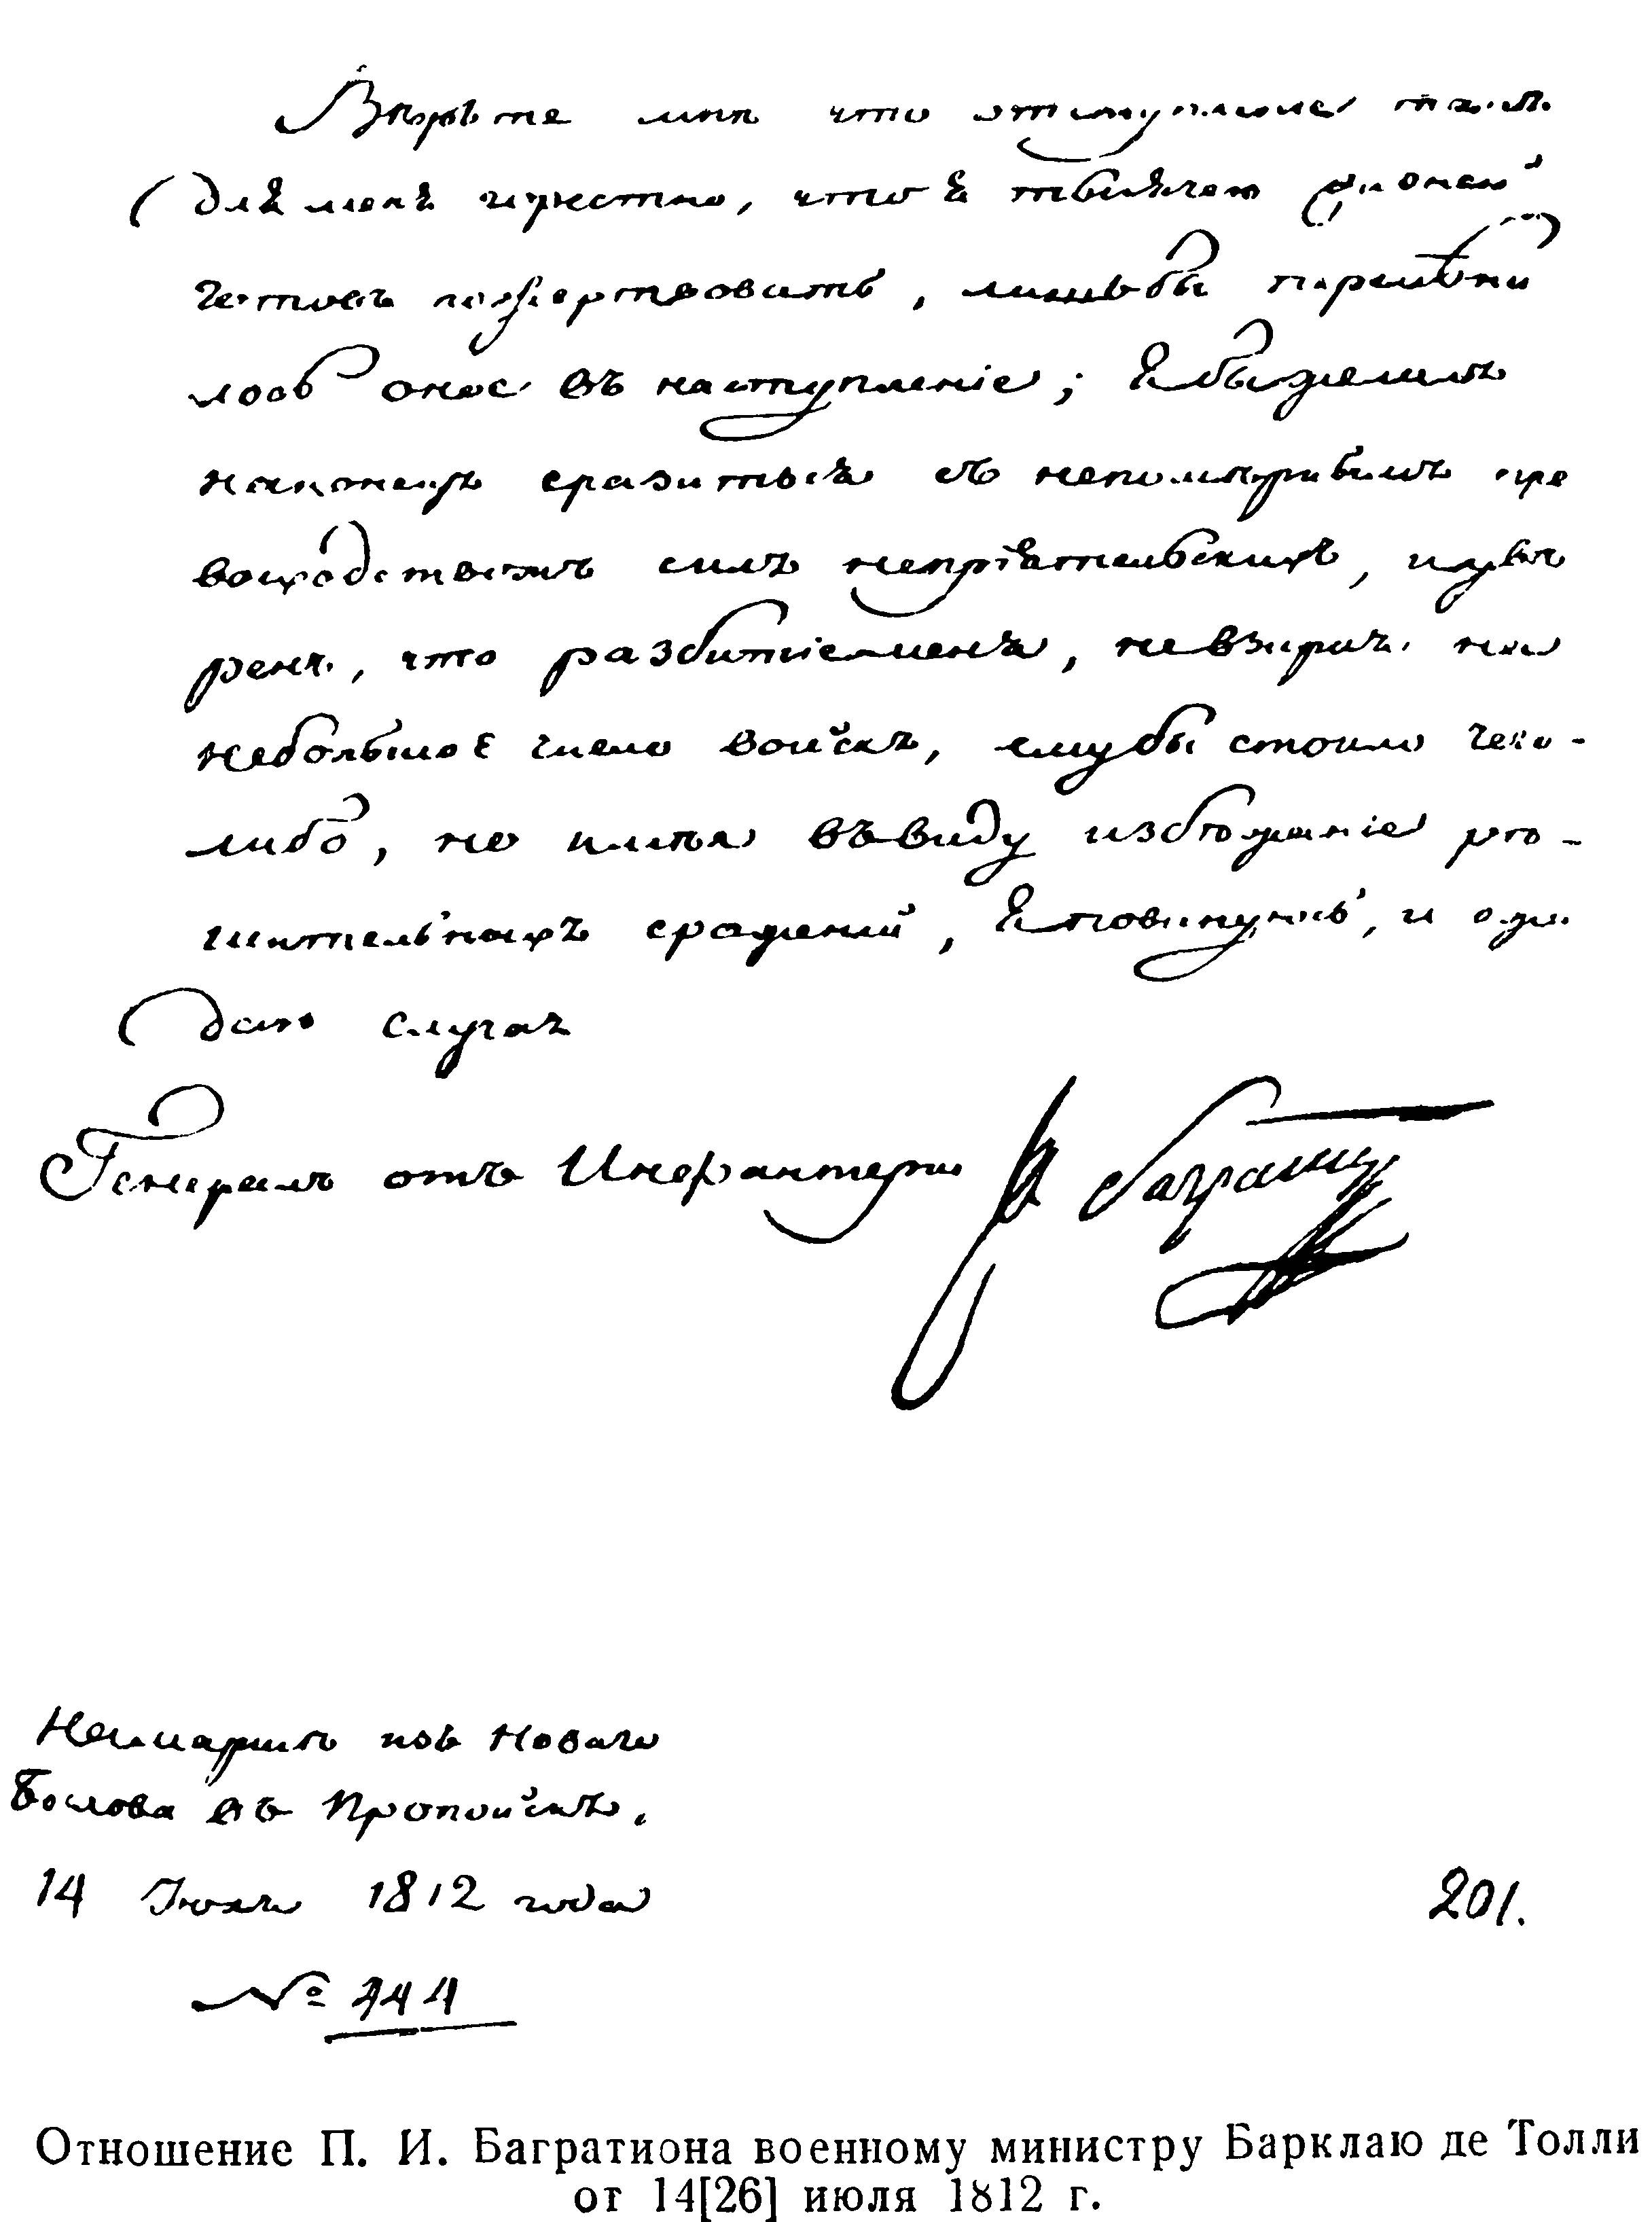 Вѣрьте мнѣ что отступление такъ
для меня чужстно, что я тысячею жизней
готовъ пожертвовать, лишьбы перемѣни
лось оное въ наступленіе; я бы желалъ
наконецъ сразиться съ непомѣрнымъ пре
восходствомъ силъ непріятельскихъ, и увѣ
ренъ, что разбитіе меня, невзирая на
небольшое число войскъ, емубы стоило чего-
либо, но имѣя въ виду избѣжаніе рѣ-
шительныхъ сраженій, я повинуюсь, и ожи
даю случая
Генералъ отъ Инфантеріи К Багратио
На маршѣ изъ Новаго
Быхова въ Пропойскъ,
14 Июля 1812 года
201.
№ 444
Отношение П. И. Багратиона военному министру Барклаю де Толли
от 14[26] июля 1812 г.